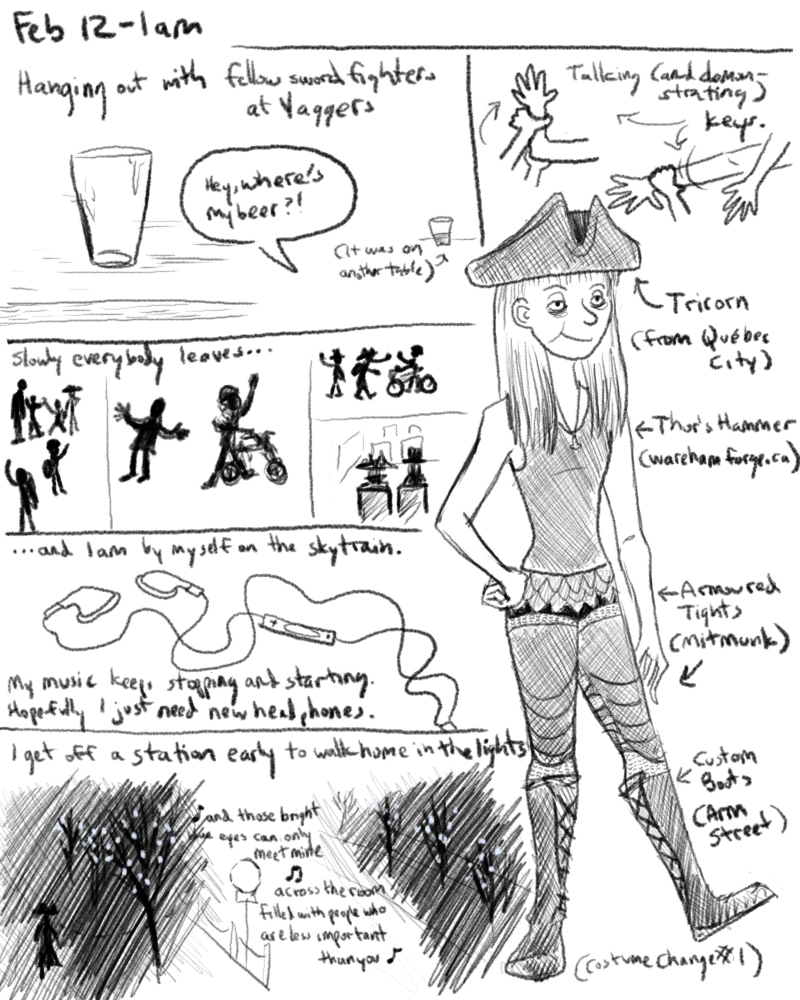 Feb 12 - 1am
Hanging out with fellow sword fighters
at Yaggers
Hey, where's
my beer?!
(it was on
another table)
Talking (and demon-
strating)
keys.
Tricorn
(from Québec
City)
Thor's Hammer
(warehamforge.ca)
Armoured
Tights
(Mitmunk)
Custom
Boots
(Arm
Street)
(costume change #1)
Slowly everybody leaves...
...and I am by myself on the skytrain.
My music keeps stopping and starting.
Hopefully I just need new headphones.
I get off a station early to walk home in the lights
♪ and those bright
blue eyes can only
meet mine
♫
across the room
filled with people who
are less important
than you ♪